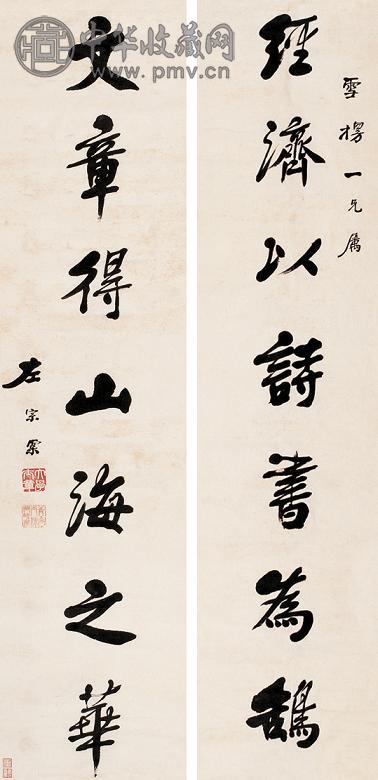 雪楞一兄屬
經濟以詩書為鵠
文章得山海之華
左宗棠
中华收藏网
www.pmv.cn